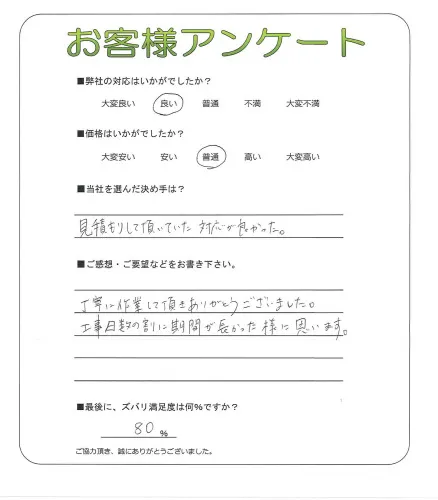 お客様アンケート
■弊社の対応はいかがでしたか？
大変良い 良い 普通 不満 大変不満
■価格はいかがでしたか？
大変安い 安い 普通 高い 大変高い
■当社を選んだ決め手は？
見積もりして頂いていた 対応が良かった。
■ご感想・ご要望などをお書き下さい。
丁寧に作業して頂きありがとうございました。
工事日数の割に期間が長かった様に思います。
■最後に、ズバリ満足度は何％ですか？
80 %
ご協力頂き、誠にありがとうございました。